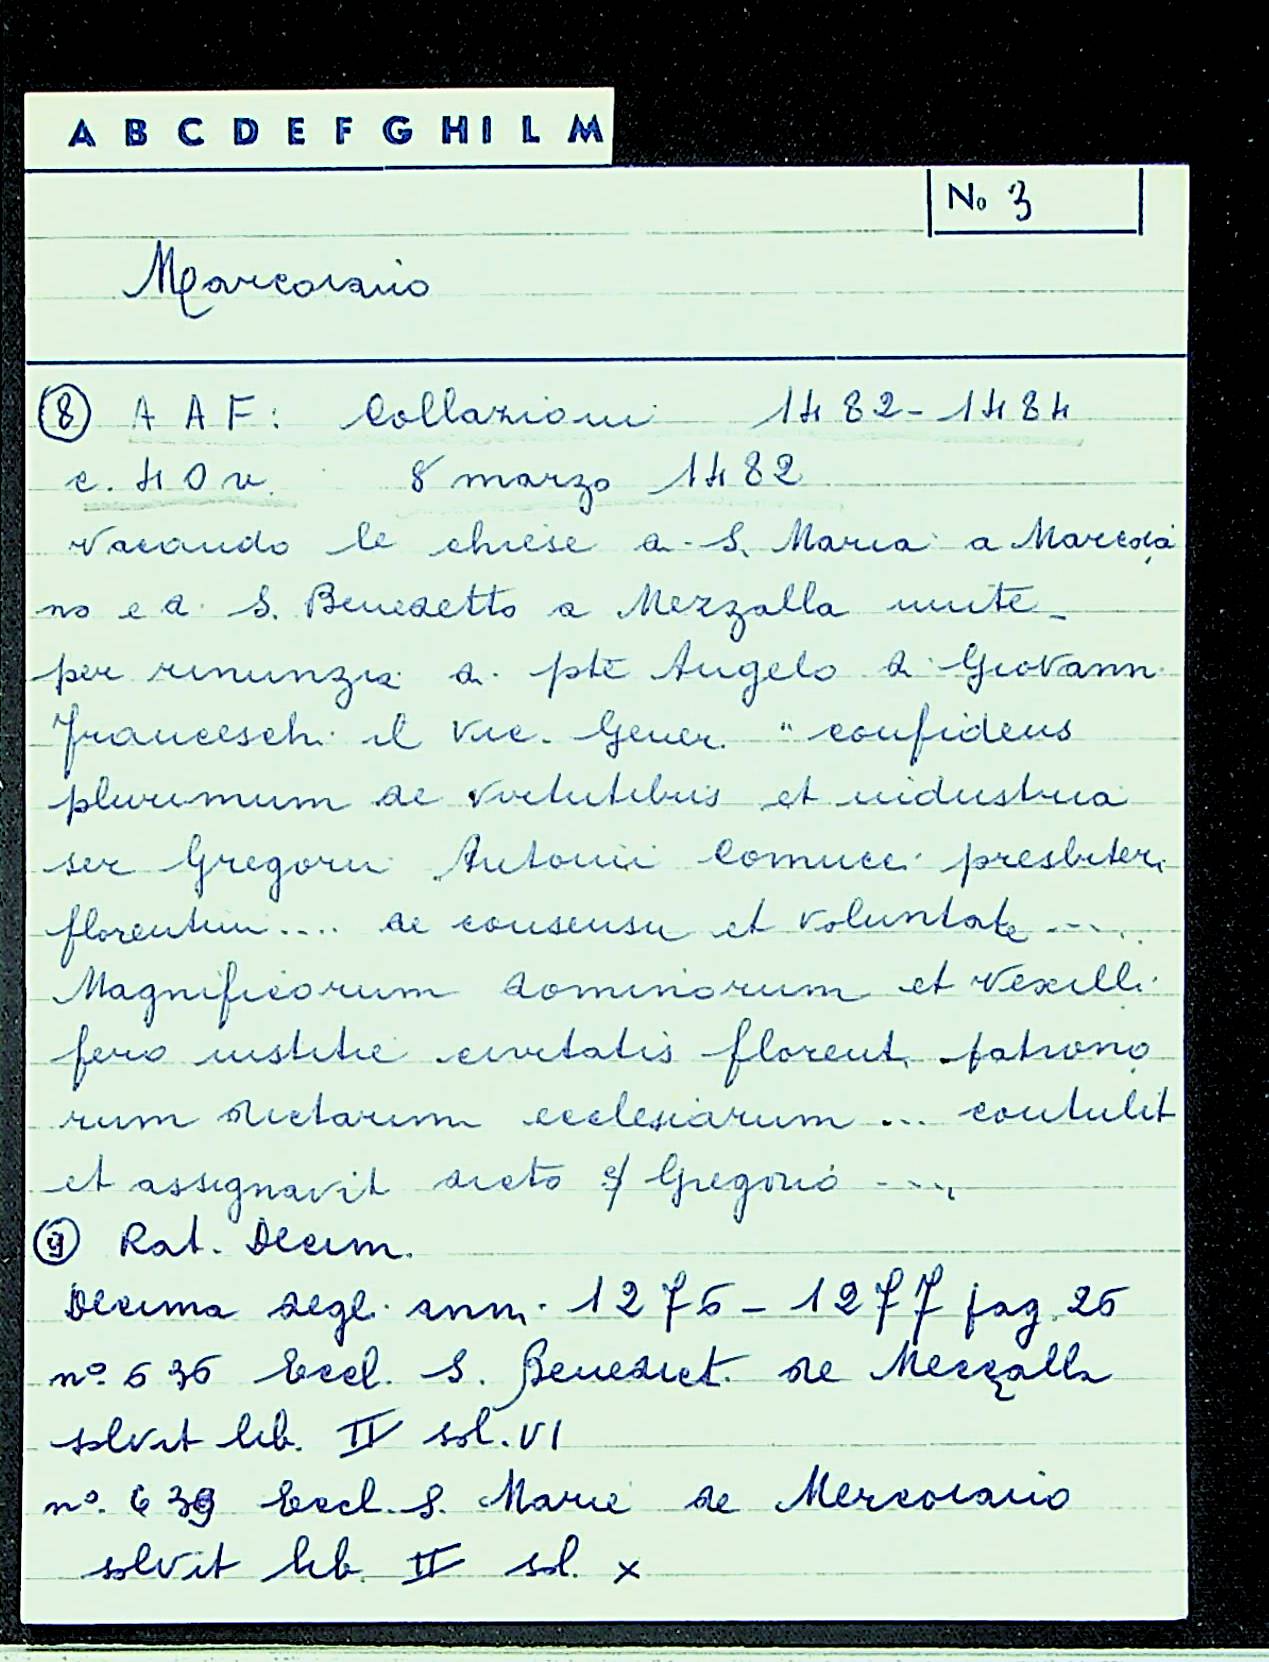 A B C D E F G H I L M
No 3
Marcoiano
(8) A A F: Collazioni 1482-1484
c. 40 v. 8 marzo 1482
Vacando le chiese di S. Maria a Marcoia
no e di S. Benedetto a Mezzalla unite
per rinunzia di pte Angelo di Giovanni
Franceschi il Vic. Gener. "confidens
plurimum de virtutibus et industria
ser Gregorii Antonii Comucci presbiteri
florentini .... de consensu et voluntate ....
Magnificorum dominorum et Vexilli
fero iustitie civitatis florent. patrono
rum dictarum ecclesiarum ... contulit
et assignavit dicto Gregorio ....
(9) Rat. Decim.
Decima degli anni 1276-1277 pag. 26
n° 636 Eccl. S. Benedict. de Mezzalla
solvit lib. II sol. VI
n°. 639 Eccl. S. Marie de Mercoiano
solvit lib. II sol. X